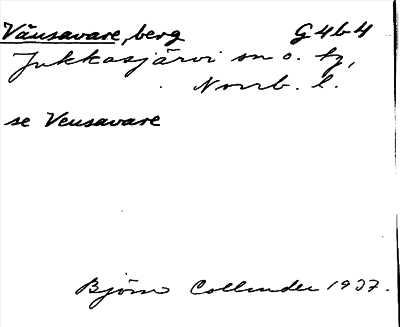 Väusavare, berg G4b4
Jukkasjärvi sn o. tg,
Norrb. l.
se Veusavare
Björn Collinder 1937.